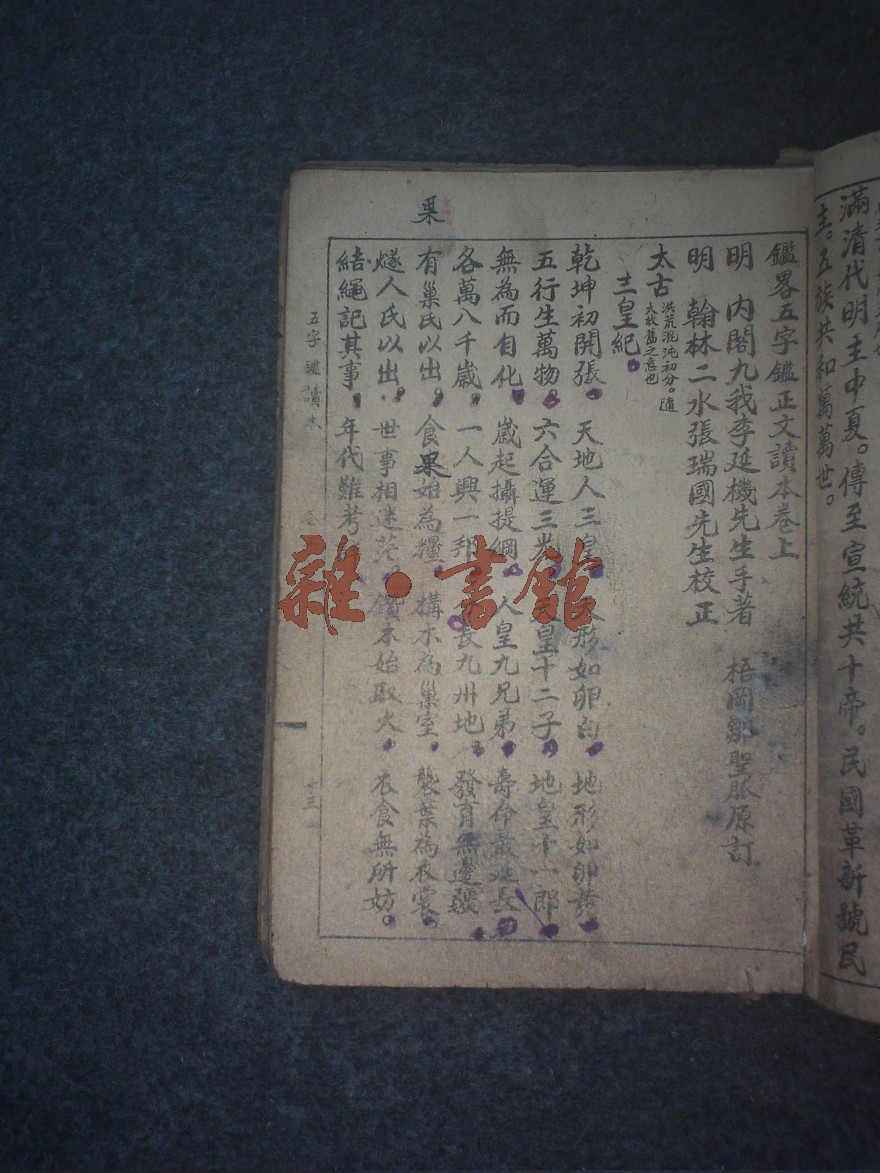 滿清代明主中夏。傳至宣統共十帝。民國革新號民
主。五族共和萬萬世。
鑑畧五字鑑正文讀本卷上
明 內閣九我李延機先生手著 梧岡鄒聖脈原訂
明 翰林二水張瑞國先生校正
太古 洪荒混沌初分。隨
太故舊之意也
三皇紀。
乾坤初開張。天地人三皇 形如卵白。地形如卵黃。
五行生萬物。六合運三光 皇十二子。地皇十一郎
無為而自化。歲起攝提綱。人皇九兄弟。壽命最延長
各萬八千歲。一人興一邦。長九州地。發育無邊疆
有巢氏以出。食果始為糧。構木為巢室。襲葉為衣裳。
燧人氏以出。世事相迷茫。鑽木始取火。衣食無所妨。
結繩記其事。年代難考
果
五字鑑讀本
十三
雜·書館